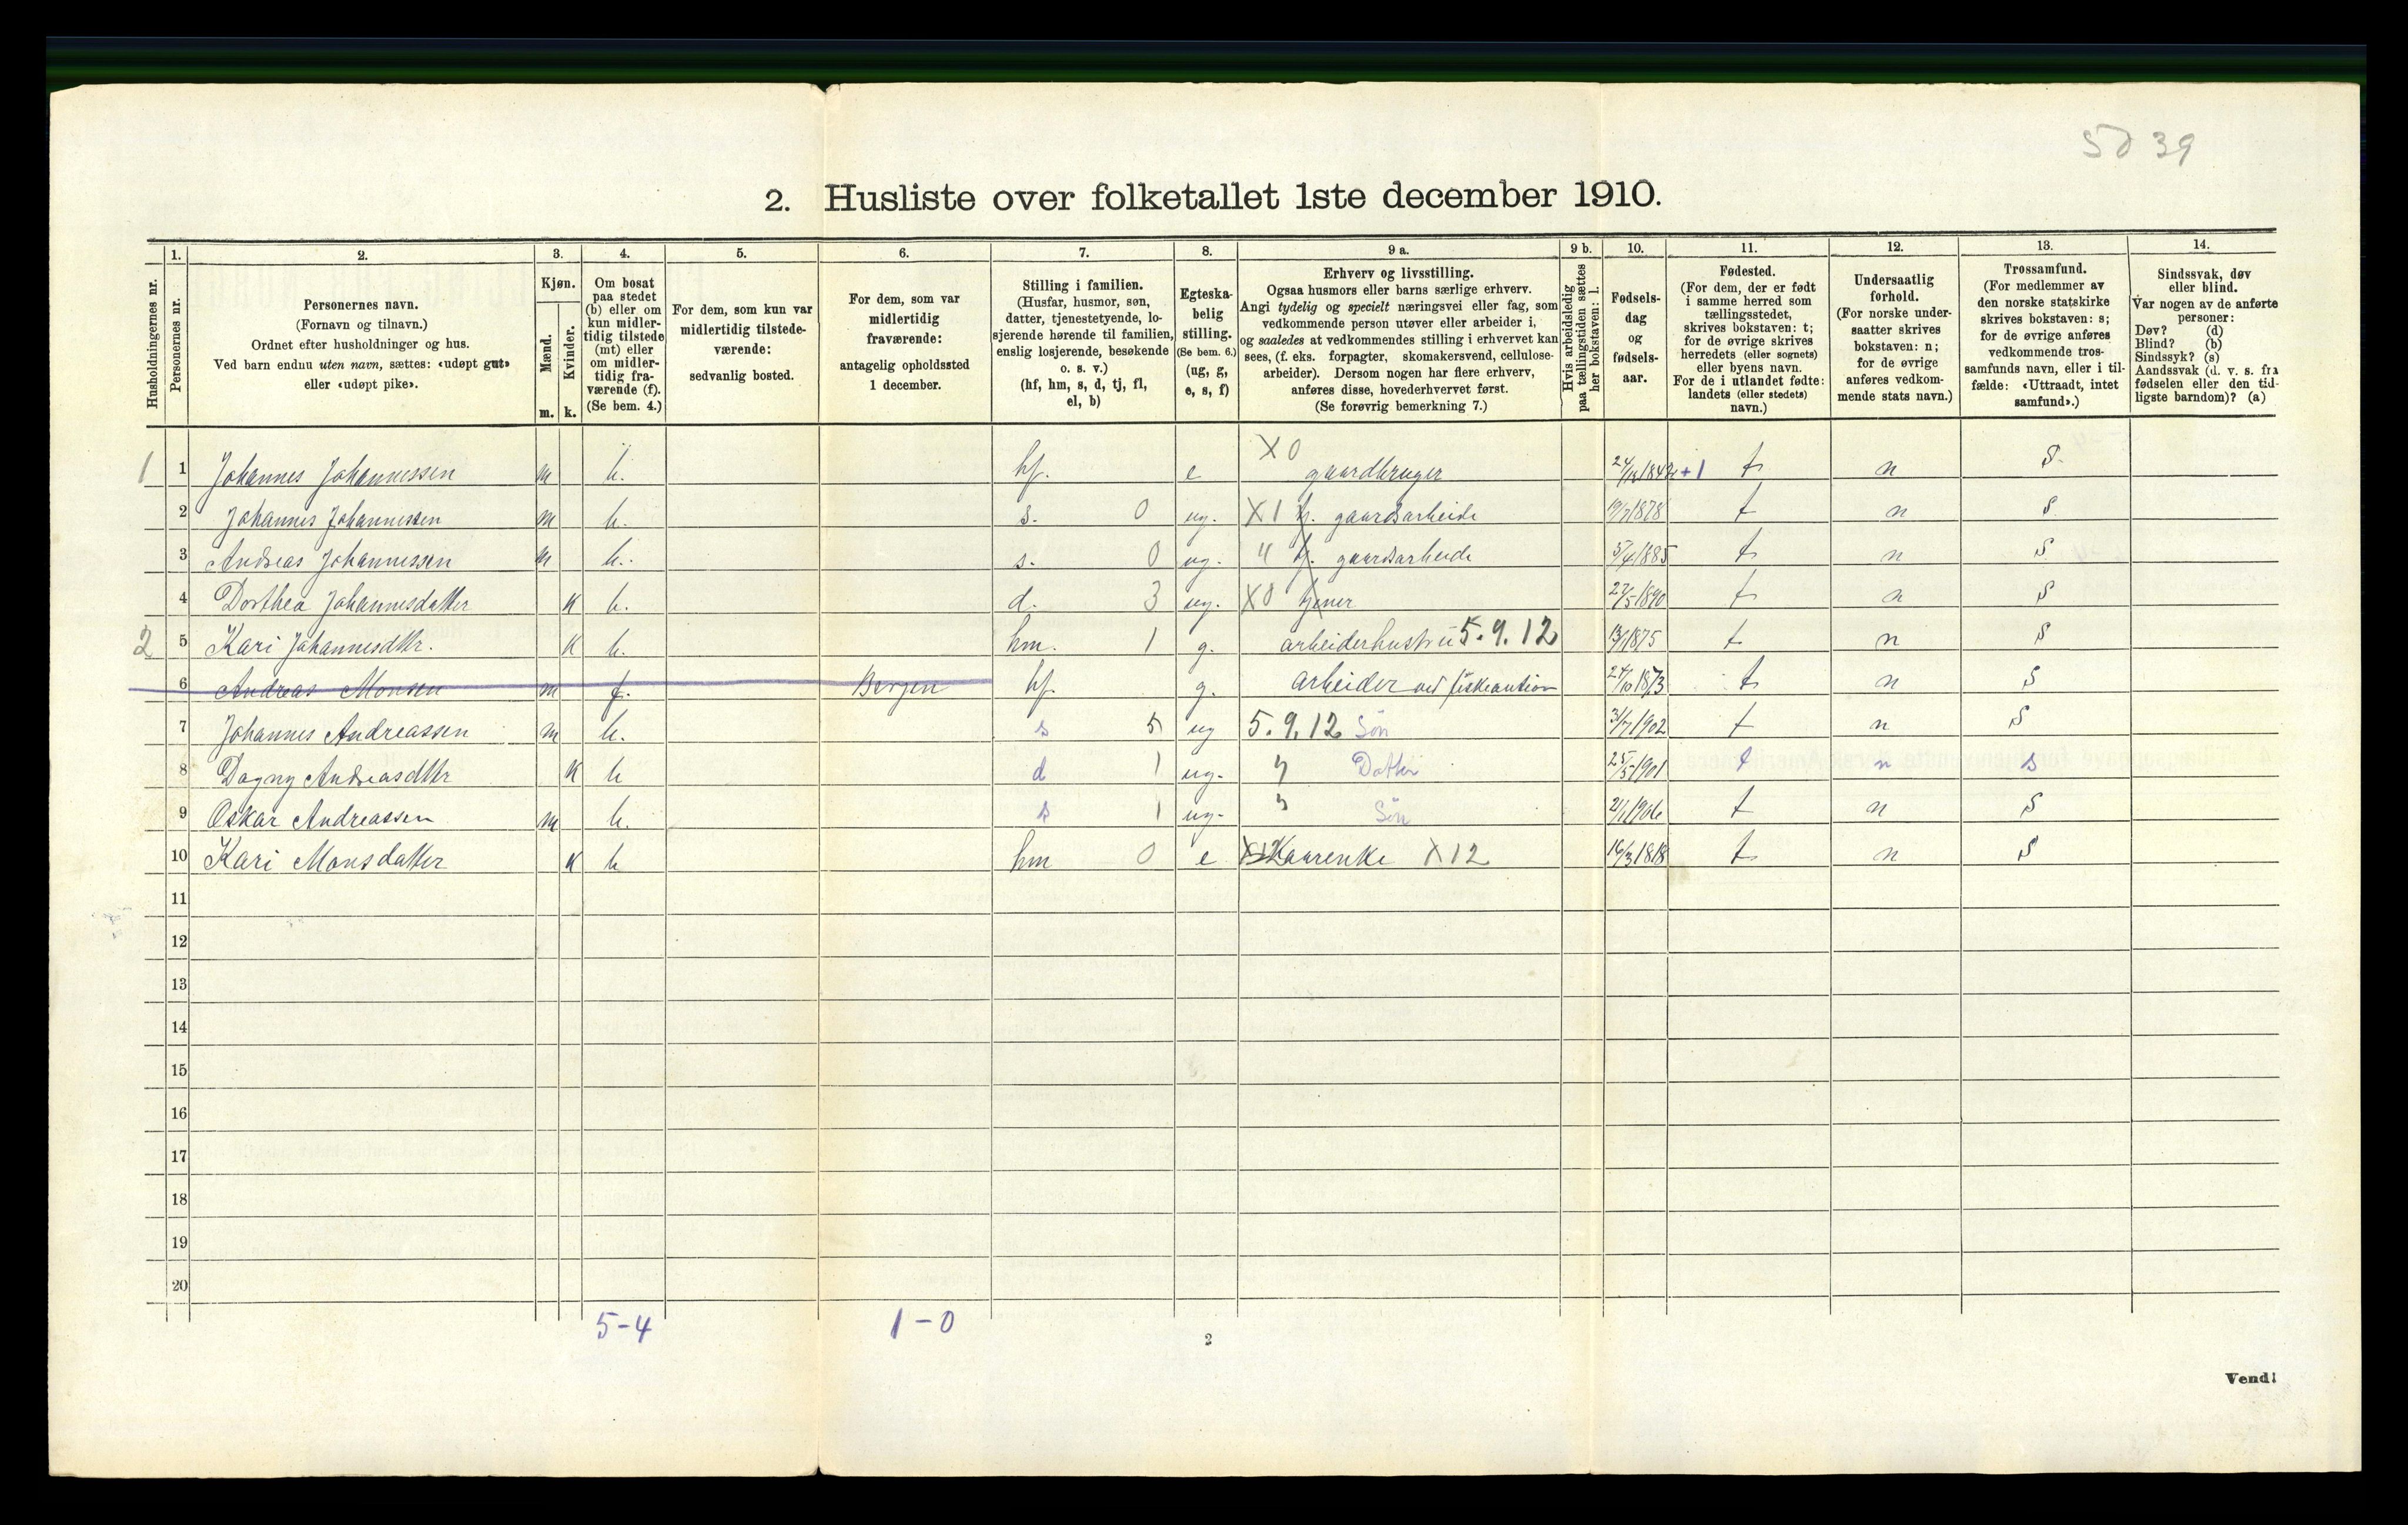 50 39
2. Husliste over folketallet 1ste december 1910.
Husholdningernes nr.
1. Personernes nr.
2. Personernes navn. (Fornavn og tilnavn.) Ordnet efter husholdninger og hus. Ved barn endnu uten navn, sættes: «udøpt gut» eller «udøpt pike».
3. Kjøn. Mænd. m. Kvinder. k.
4. Om bosat paa stedet (b) eller om kun midlertidig tilstede (mt) eller om midlertidig fraværende (f). (Se bem. 4.)
5. For dem, som kun var midlertidig tilstedeværende: sedvanlig bosted.
6. For dem, som var midlertidig fraværende: antagelig opholdssted 1 december.
7. Stilling i familien. (Husfar, husmor, søn, datter, tjenestetyende, losjerende hørende til familien, enslig losjerende, besøkende o. s. v.) (hf, hm, s, d, tj, fl, el, b)
8. Egteskabelig stilling. (Se bem. 6.) (ug, g, e, s, f)
9 a. Erhverv og livsstilling. Ogsaa husmors eller barns særlige erhverv. Angi tydelig og specielt næringsvei eller fag, som vedkommende person utøver eller arbeider i, og saaledes at vedkommendes stilling i erhvervet kan sees, (f. eks. forpagter, skomakersvend, cellulosearbeider). Dersom nogen har flere erhverv, anføres disse, hovederhvervet først. (Se forøvrig bemerkning 7.)
9 b. Hvis arbeidsledig paa tællingstiden sættes her bokstaven: l.
10. Fødselsdag og fødselsaar.
11. Fødested. (For dem, der er født i samme herred som tællingsstedet, skrives bokstaven: t; for de øvrige skrives herredets (eller sognets) eller byens navn. For de i utlandet fødte: landets (eller stedets) navn.)
12. Undersaatlig forhold. (For norske undersaatter skrives bokstaven: n; for de øvrige anføres vedkommende stats navn.)
13. Trossamfund. (For medlemmer av den norske statskirke skrives bokstaven: s; for de øvrige anføres vedkommende trossamfunds navn, eller i tilfælde: «Uttraadt, intet samfund».)
14. Sindssvak, døv eller blind. Var nogen av de anførte personer: Døv? (d) Blind? (b) Sindssyk? (s) Aandssvak (d. v. s. fra fødselen eller den tidligste barndom)? (a)
1 1 Johannes Johannessen m b. hf. e X0 gaardbruger 24/12 1842 +1 t n S.
2 Johannes Johannessen m b. s. 0 ug. X1 tj. gaardsarbeide 1878 t n S.
3 Andreas Johannessen m b. s. 0 ug. " tj. gaardsarbeide 5/4 1885 t n S
4 Dorthea Johannesdatter k b. d. 3 ug. X0 tjener 27/5 1890 t n S
2 5 Kari Johannesdtr. k b. hm. 1 g. arbeiderhustru 5.9.12 13/1 1875 t n S
6 Andreas Monsen m f. Bergen hf g. arbeider ved fiskeaution 24/10 1873 t n S
7 Johannes Andreassen m b. s 5 ug 5.9.12 Søn 31/7 1902 t n S
8 Dagny Andreasdtr k b d 1 ug. " Datter 25/5 1901 t n s
9 Oskar Andreassen m b. s 1 ug. " Søn 21/1 1906 t n S
10 Kari Monsdatter k b hm 0 e X12 Kaarenke X12 16/3 1818 t n S
11
12
13
14
15
16
17
18
19
20
5-4 1-0
2
Vend!